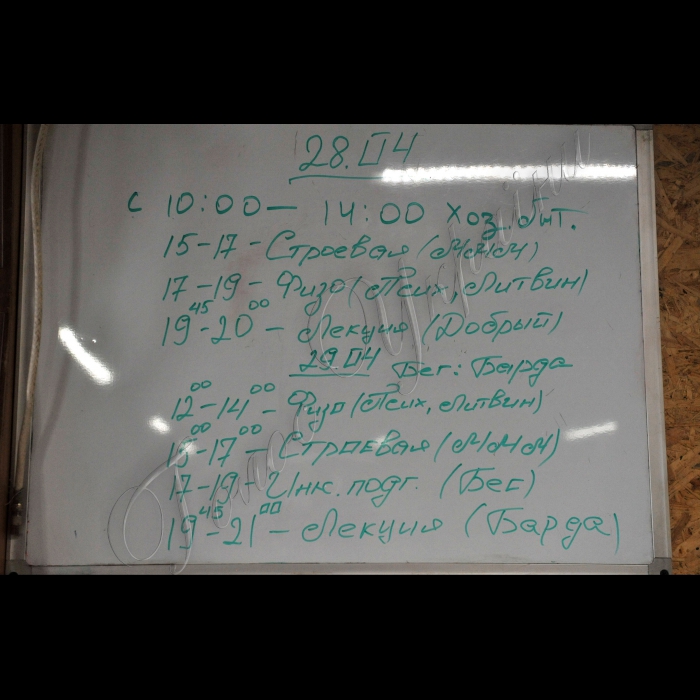 28.04
с 10:00 — 14:00 хоз. быт.
15-17 - Строевая (МММ)
17-19 - Физо (Псих, Литвин)
19⁴⁵-20⁰⁰ - Лекция (Добрый)
29.04 Бег: Барда
12⁰⁰-14⁰⁰ - Физо (Псих, Литвин)
15⁰⁰-17⁰⁰ - Строевая (МММ)
17-19 - Инж. подг. (Бес)
19⁴⁵-21⁰⁰ - Лекция (Барда)